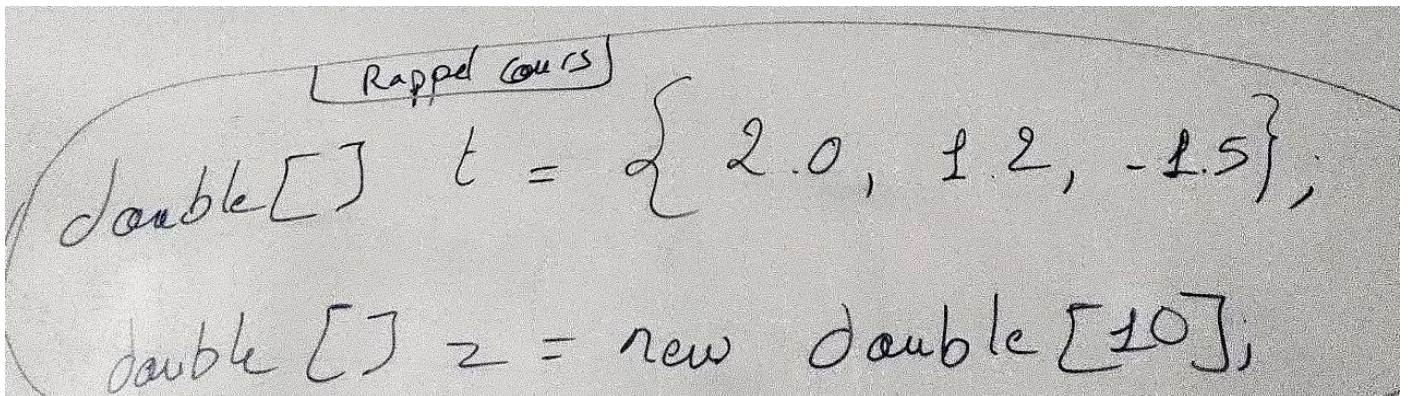 Rappel cours
double[] t = { 2.0, 1.2, -1.5};
double [] z = new double [10];